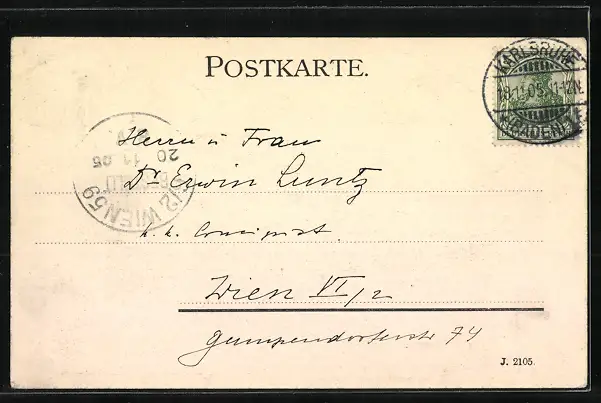 POSTKARTE.
KARLSRUHE
18.11.05. 11-12N.
(BADEN) 1.
Herrn u Frau
Dr Erwin Luntz
20 11 05
12 WIEN 59
k. k. Concipist.
Wien VI/2
Gumpendorferstr 74
J. 2105.